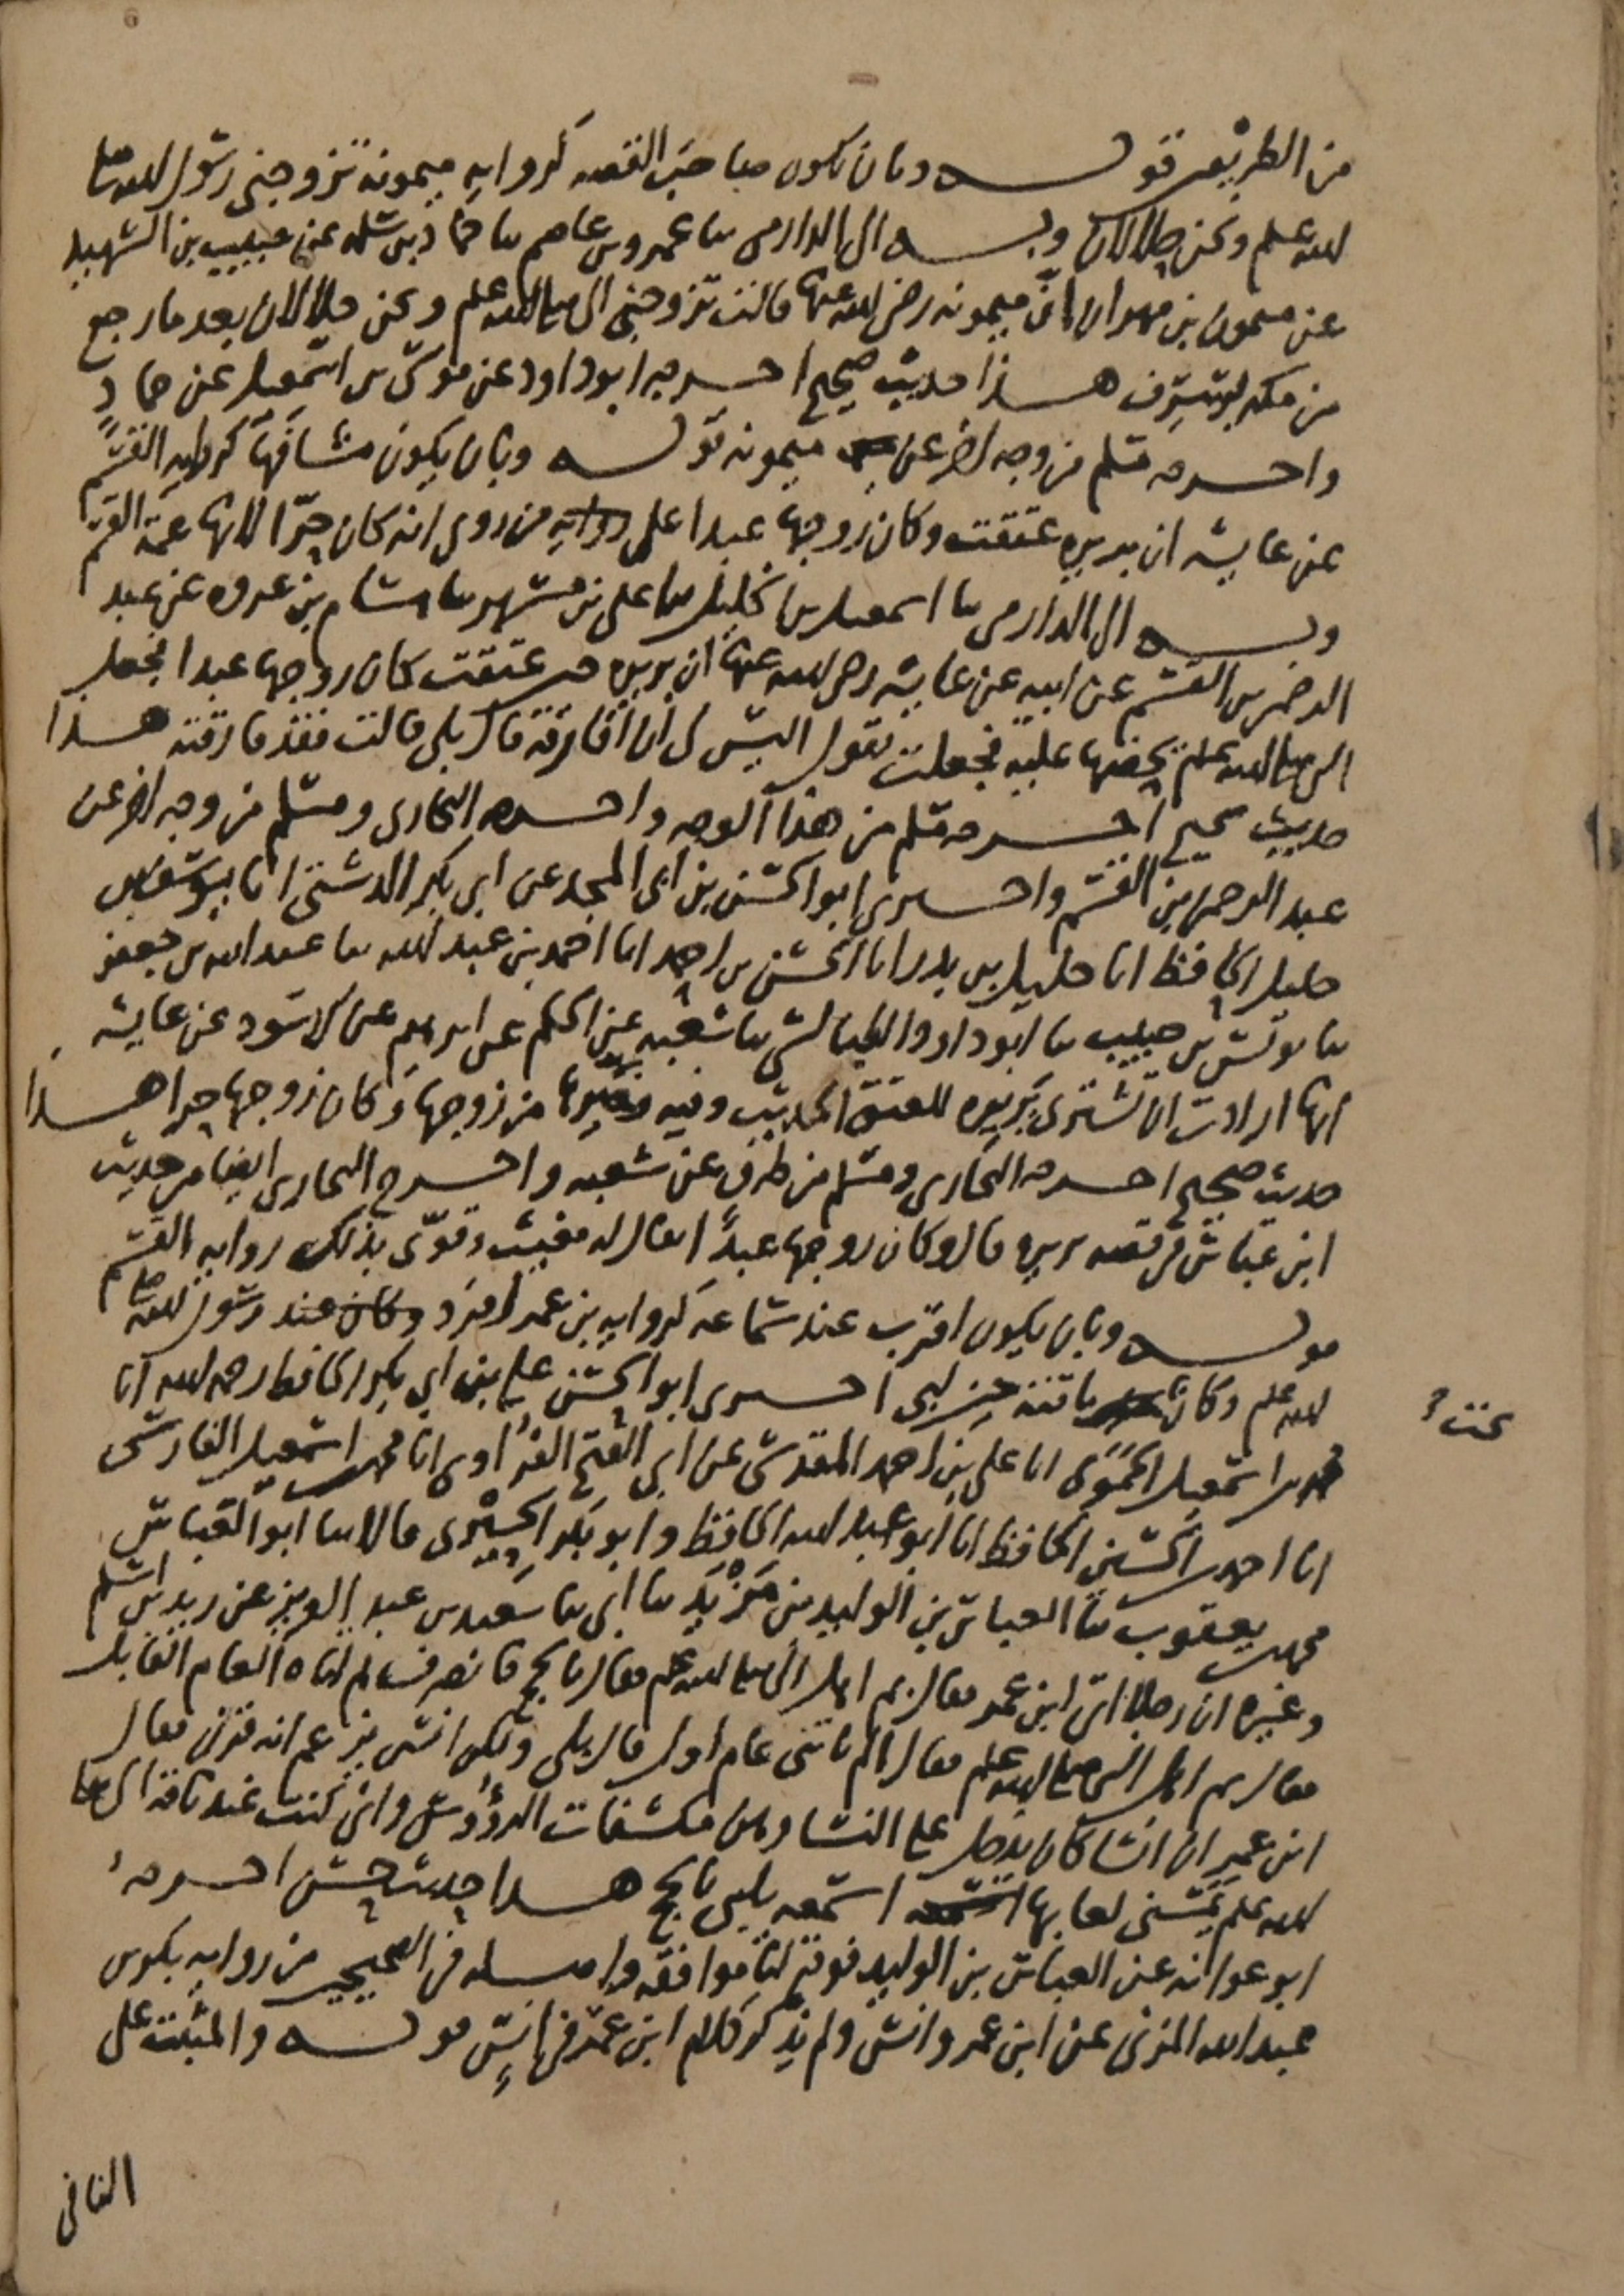 من الطريقين قوله وبان يكون صاحب القصه كرواية ميمونه تزوجني رسول الله صلى
الله عليه وسلم ونحن حلالان وبه الى الدارمي ثنا عمرو بن عاصم ثنا حماد بن سلمه عن حبيب بن الشهيد
عن ميمون بن مهران ان ميمونه رضي الله عنها قالت تزوجني النبي صلى الله عليه وسلم ونحن حلالان بعد ما رجع
من مكه بسرف هذا حديث صحيح اخرجه ابو داود عن موسى بن اسمعيل عن حماد
واخرجه مسلم من وجه اخر عن ميمونه قوله وبان يكون مشافها كرواية القسم
عن عايشه ان بريره عتقت وكان زوجها عبدا على رواية من روى انه كان حرا لانها عمة القسم
وبه الى الدارمي ثنا اسمعيل بن خليل ثنا علي بن مسهر ثنا هشام بن عروه عن عبد
الرحمن بن القسم عن ابيه عن عايشه رضي الله عنها ان بريره حين عتقت كان زوجها عبدا فجعل
النبي صلى الله عليه وسلم يحضها عليه فجعلت تقول اليس لي ان افارقه قال بلى قالت فقد فارقته هذا
حديث صحيح اخرجه مسلم من هذا الوجه واخرجه البخاري ومسلم من وجه اخر عن
عبد الرحمن بن القسم واخبرني ابو الحسن بن ابي المجد عن ابي بكر الدشتي انا يوسف بن
خليل الحافظ انا خليل بن بدر انا الحسن بن احمد انا احمد بن عبد الله ثنا عبد الله بن جعفر
ثنا يونس بن حبيب ثنا ابو داود الطيالسي ثنا شعبه عن الحكم عن ابرهيم عن الاسود عن عايشه
انها ارادت ان تشتري بريره للعتق الحديث وفيه وخيرها من زوجها وكان زوجها حرا هذا
حديث صحيح اخرجه البخاري ومسلم من طرق عن شعبه واخرج البخاري ايضا من حديث
ابن عباس في قصه بريره قال وكان زوجها عبدا يقال له مغيث وقوى بذلك رواية القسم
قوله وبان يكون اقرب عند سماعه كرواية بن عمر افرد وكان عند رسول الله صلى
الله عليه وسلم وكان ناقته حين لبى اخبرني ابو الحسن علي بن ابي بكر الحافظ رحمه الله انا
تحت
محمد بن اسمعيل الحموي انا علي بن احمد المقدسي عن ابي الفتح الفراوي انا محمد بن اسمعيل الفارسي
انا احمد بن الحسين الحافظ انا ابو عبد الله الحافظ وابو بكر الحيري قالا ثنا ابو العباس
محمد بن يعقوب ثنا العباس بن الوليد بن مزيد ثنا ابي ثنا سعيد بن عبد العزيز عن زيد بن اسلم
وغيره ان رجلا اتى ابن عمر فقال بم اهل النبي صلى الله عليه وسلم فقال بالحج فانصرف ثم اتاه العام القابل
فقال بم اهل النبي صلى الله عليه وسلم فقال الم تاتني عام اول قال بلى ولكن انس يزعم انه قرن فقال
ابن عمر ان انسا كان يدخل على النساء وهن مكشفات الرؤوس واني كنت عند ناقة النبي صلى
الله عليه وسلم يمسني لعابها اسمعه يلبي بالحج هذا حديث حسن اخرجه
ابو عوانه عن العباس بن الوليد فوقع لنا موافقه واصله في الصحيحين من رواية بكر بن
عبد الله المزني عن ابن عمر وانس ولم يذكر كلام ابن عمر في انس قوله والمثبت على
النافي